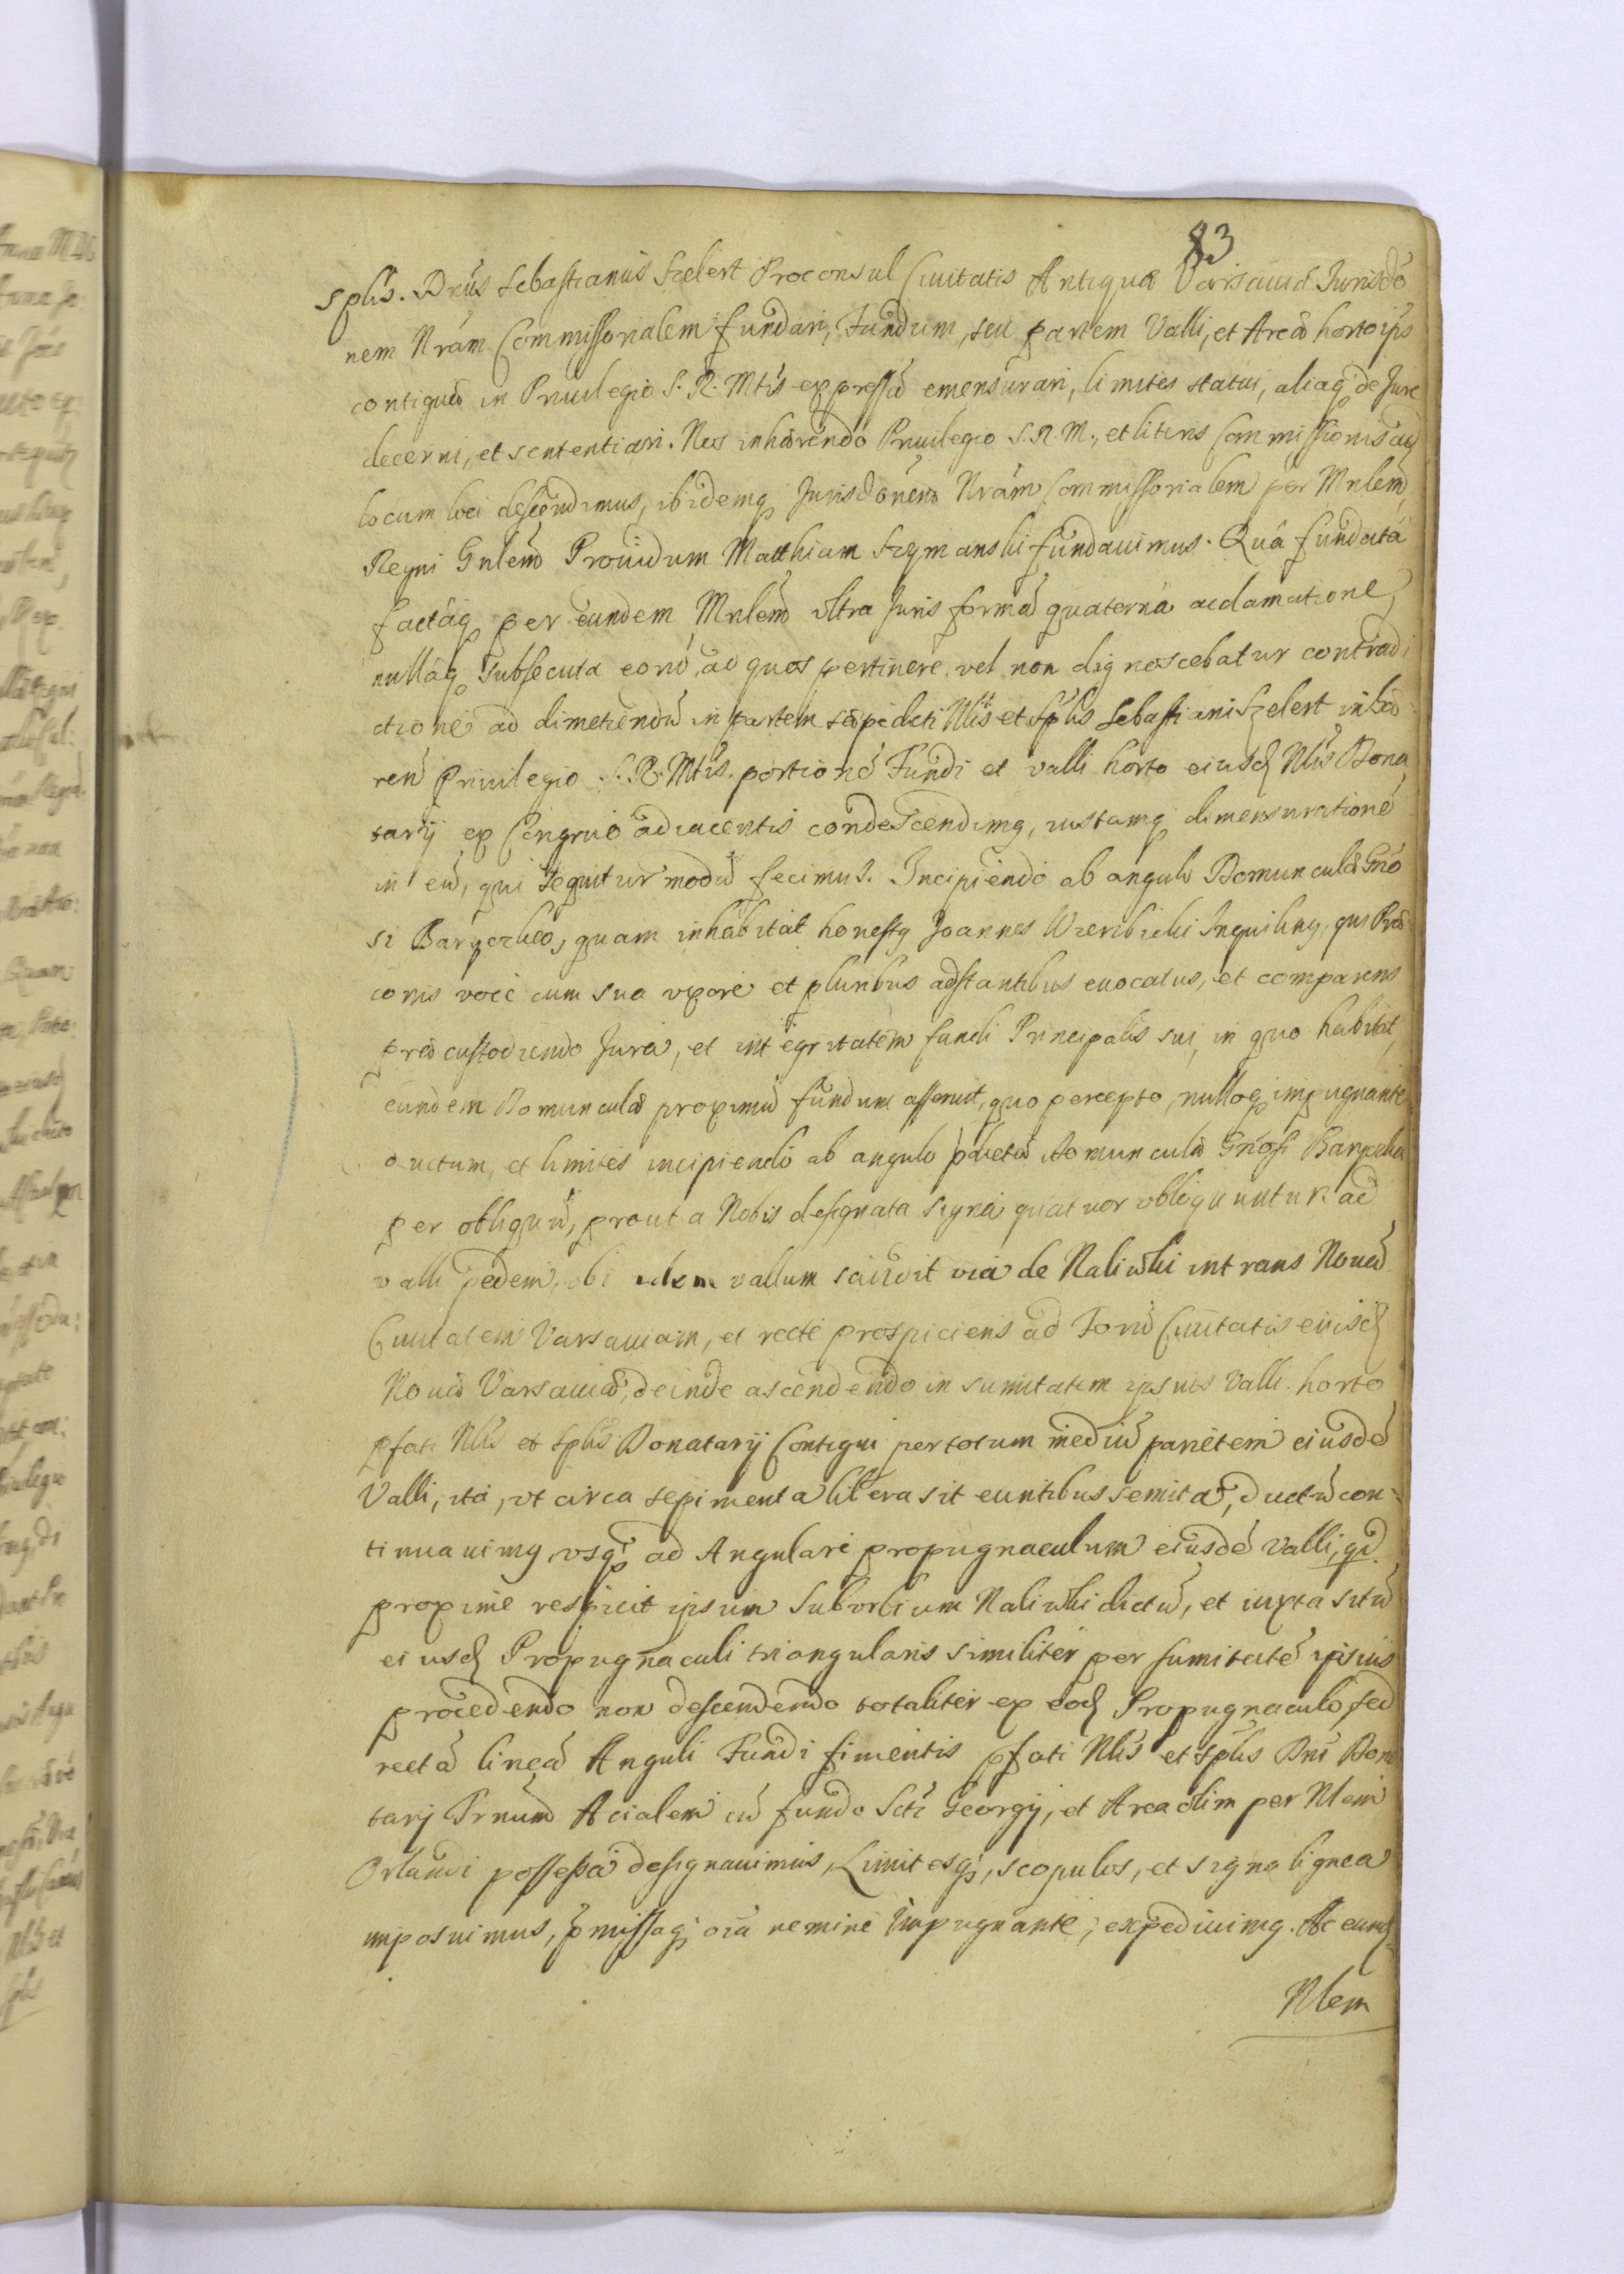 83
splis. Dnus Sebastianus Szelert Proconsul Ciuitatis Antiquæ Varsauiæ Jurisdo
nem Nram Commissorialem fundari, Fundum, seu partem Valli, et Areæ horto ips
contiguæ in Priuilegio S. R. Mtis expressæ emensurari, limites statui, aliaq de Jure
decerni, et sententiari. Nos inhærendo Priuilegio S. R. M., et literis Commissionis ad
locum loci descendimus, ibidemq Jurisdonem Nram Commissorialem per Mnlem
Regni Gnlem Prouidum Matthiam Szymanski fundauimus. Quâ fundatâ
factâq per eundem Mnlem vltra Juris formã quaternâ acclamatione,
nullâq subsecuta eorũ, ad quos pertinere vel non dignoscebatur contradi
ctione ad dimetiendũ in partem sæpedicti Nlis et Splis Sebastiani Szelert inhæ
ren Priuilegio S. R. Mtis. portionẽ Fundi et valli horto eiusd Nlis Dona
tarij ex Congruo adiacentis condescendimq, iustamq dimensurationẽ
in eũ, qui sequitur modũ fecimus. Incipiendo ab angulo Domunculæ Gño
si Baryczka, quam inhabitat honestq Joannes Wierzbicki Inquilinq, qui Præ
conis voce cum sua vxore et pluribus adstantibus euocatus, et comparens
præcustodiendo Jura, et integritatem fundi Principalis sui, in quo habitat,
eundem Domunculæ proximũ fundum asseruit, quo percepto, nulloq impugnante
ductum, et limites incipiendo ab angulo pdictæ Domunculæ Gñosi Baryczka
per obliquũ, prout a Nobis designata signa quatuor obloquuntur ad
valli pedem, vbi idem vallum via de Naliwki intrans Nouã
Ciuitatem Varsauiam, et recte prospiciens ad Forũ Ciuitatis eiusd
Nouæ Varsauiæ, deinde ascendendo in sumitatem ipsius Valli horto
pfati Nlis et Splis Donatarij Contigui per totum mediũ parietem eiusdẽ
Valli, ita, vt circa sepimenta libera sit euntibus semita, ductũ con-
tinuauimq, vsq ad Angulare propugnaculum eiusdẽ Valli, qd
proxime respicit ipsum Suburbium Naliwki dictũ, et iuxta sitũ
eiusd Propugnaculi triangularis similiter per sumitatẽ ipsius
procedendo non descendendo totaliter ex eod Propugnaculo, sed
rectâ lineâ Anguli Fundi pfati Nlis et Splis Dni Dona
tarij Acialem cũ fundo Scti Georgij, et Area olim per Nlem
Orlandi possessa designauimus, Limitesq, scopulos, et signa lignea
imposuimus, pmissaq oia nemine impugnante, expediuimq. Ac eund
Nlem